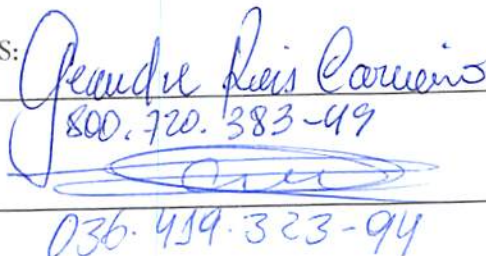 S:
Geandre Reis Carneiro
800.720.383-49
036.419.323-94